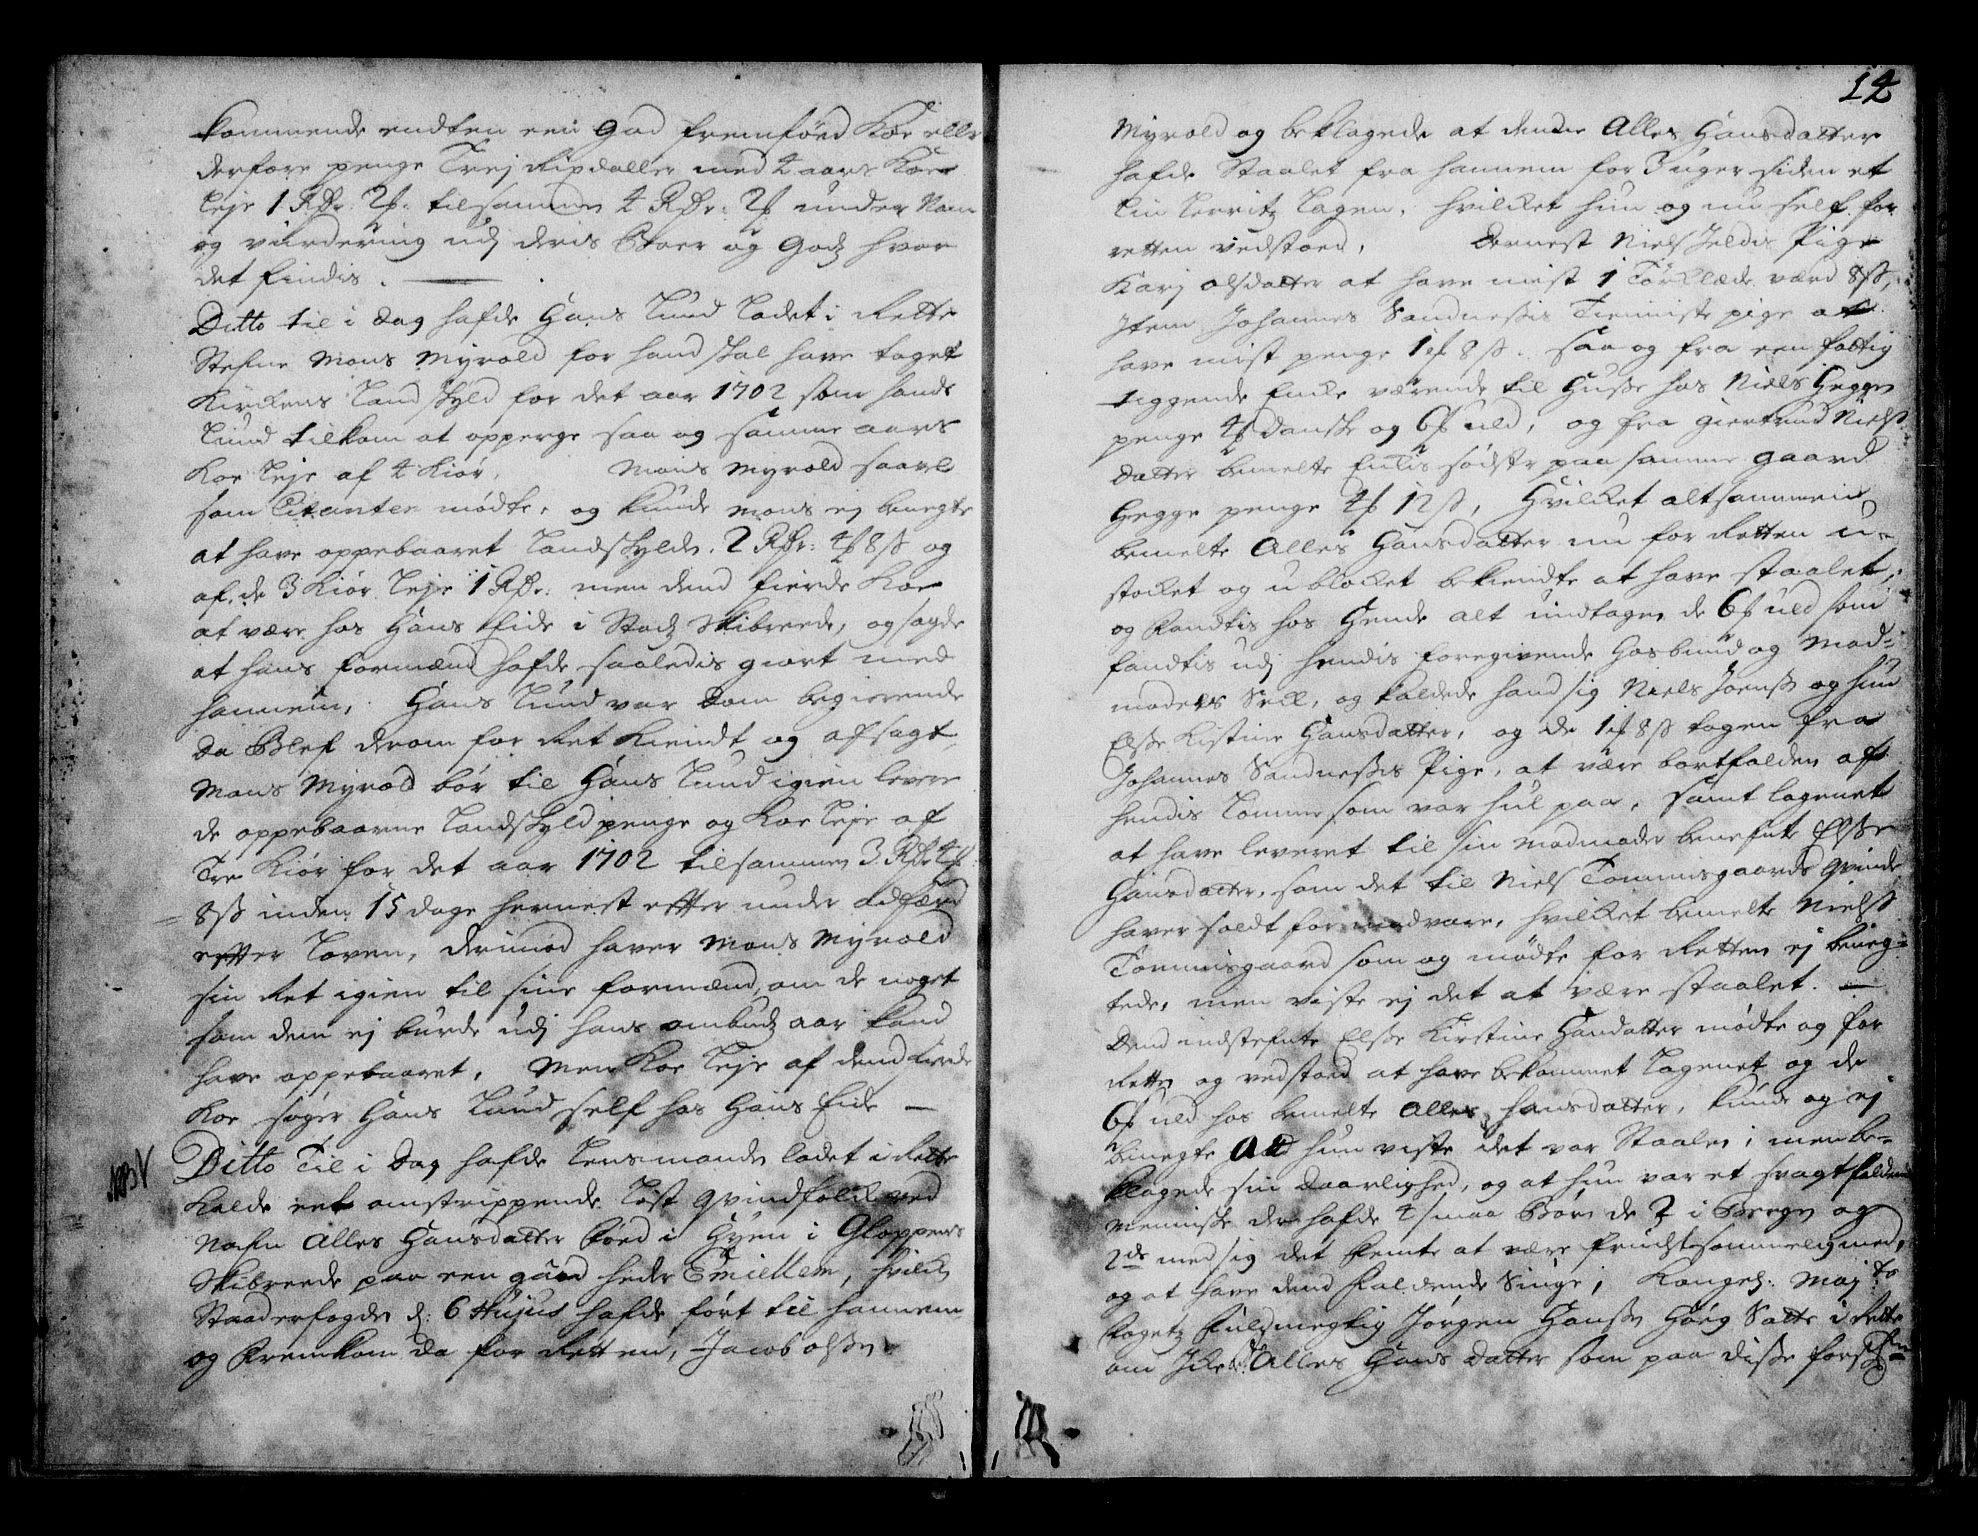 kommende endten een god fremföed Koe eller
derfore penge Trej Rixdaller med 4 aars Koe
Leje 1 Rdr: 2 ƒ: tilsammen 4 Rdr: 2 ƒ under Nam
og vurdering udj deris Boer og Godz hvor
det findis.
Ditto til i Dag hafde Hans Lund Ladet i Rette
Stefne Mons Myrold for hand skal have taget
Kirckens Landskyld for det aar 1702 som Hands
Lund tilkom at opperge saa og samme aars
Koe Leje af 4 Kiör. Mons Myrold saavel
som Citanten mødte, og kunde Mons ej benegte
at have oppebaaret Landskylde. 2 Rdr: 4 ƒ 8 ß og
af de 3 Kiör Leje 1 Rdr: men dend fierde Koe
at være hos Hans Eide i Stadz Skibreede, og sagde
at hans formænd hafde saaledis giort med
hannem, Hans Lund var Dom begierende
Da Blef derom for Ret Kiendt og afsagt
Mons Myrold bör til Hans Lund igien levere
de oppebaarne Landskyld penge og Koe Leje af
Tre Kiör for det aar 1702 tilsammen 3 Rdr 4 ƒ
8 ß inden 15 dage hernest efter under adfærd
efter Loven, derimod haver Mons Myrold
sin Ret igien til sine formænd, om de noget
som dem ej burde udj hans ombudz aar kand
have oppebaaret, Men Koe Leje af dend fierde
Koe søger Hans Lund self hos Hans Eide —
Ditto Til i Dag hafde Lensmanden ladet i Rette
Kalde eet omstrippende Löst Qvindfolck ved
Nafn Alles Hansdatter föed i Hyen i Gloppens
Skibreede paa een gaard heder Emiellem, hvilcken
Staaderfogden d: 6 Hujus hafde fört til hannem
og Fremkom da for Retten, Jacob olssen
12
Myrold og beklagede at denne Alles Hansdatter
hafde Staalet fra hannem for 3 uger siden et
Lin Lerritz Lagen, hvilcket hun og nu self for
retten vedstoed, Dernest Niels Jeldis Pige
Karj olsdatter at have mist 1 Törklæde værd 8 ß,
Item Johannes Sandnessis Tienniste pige at
have mist penge 1 ƒ 8 ß. saa og fra een fattig
tiggende Encke værende til Husse hos Niels Hegge
penge 4 ƒ danske og 6 ƒ uld, og fra Giertrud Niels
datter bemelte Enckis södster paa samme gaard
Hegge penge 4 ƒ 12 ß, Hvilcket altsammen
bemelte Alles Hansdatter nu for Retten u-
stocket og u blocket bekiendte at have staalet,
og fandtis hos Hende alt undtagen de 6 ƒ uld som
fandtis udj hendis foregivende Hosbund og Mad-
moders Seck, og kaldede hand sig Niels Joenss og hun
Elsse Kistine Hansdatter, og de 1 ƒ 8 ß tagen fra
Johannes Sandnessis Pige, at være bortfalden af
hendis Lomme som var hul paa, samt lagenet
at have leveret til sin madmoder benefnte Elsse
Hansdatter, som det til Niels Tommisgaards qvinde
haver soldt for madvare, hvilcket bemelte Nielss
Tommisgaard som og mødte for Retten ej beneg-
tede, men viste ej det at være staalet. —
Dend indstefnte Elsse Kirstine Handatter mødte og for
Retten og vedstoed at have bekommet Lagenet og de
6 ƒ uld hos bemelte Alles Hansdatter, kunde og ej
benegte Att hun viste det var Staalen, men be-
klagede sin Daarlighed, og at hun var et svagt faldende
Menniske der hafde 4 smaa Börn de 2 i Bergen og
2de med sig det femte at være frugtsommelig med,
og at have dend faldende Siuge; Kongel: Maj:ts
fogetz fuldmegtig Jörgen Hanss Höeg Satte i Rette
om Icke Alles Hans datter som paa disse forsk: